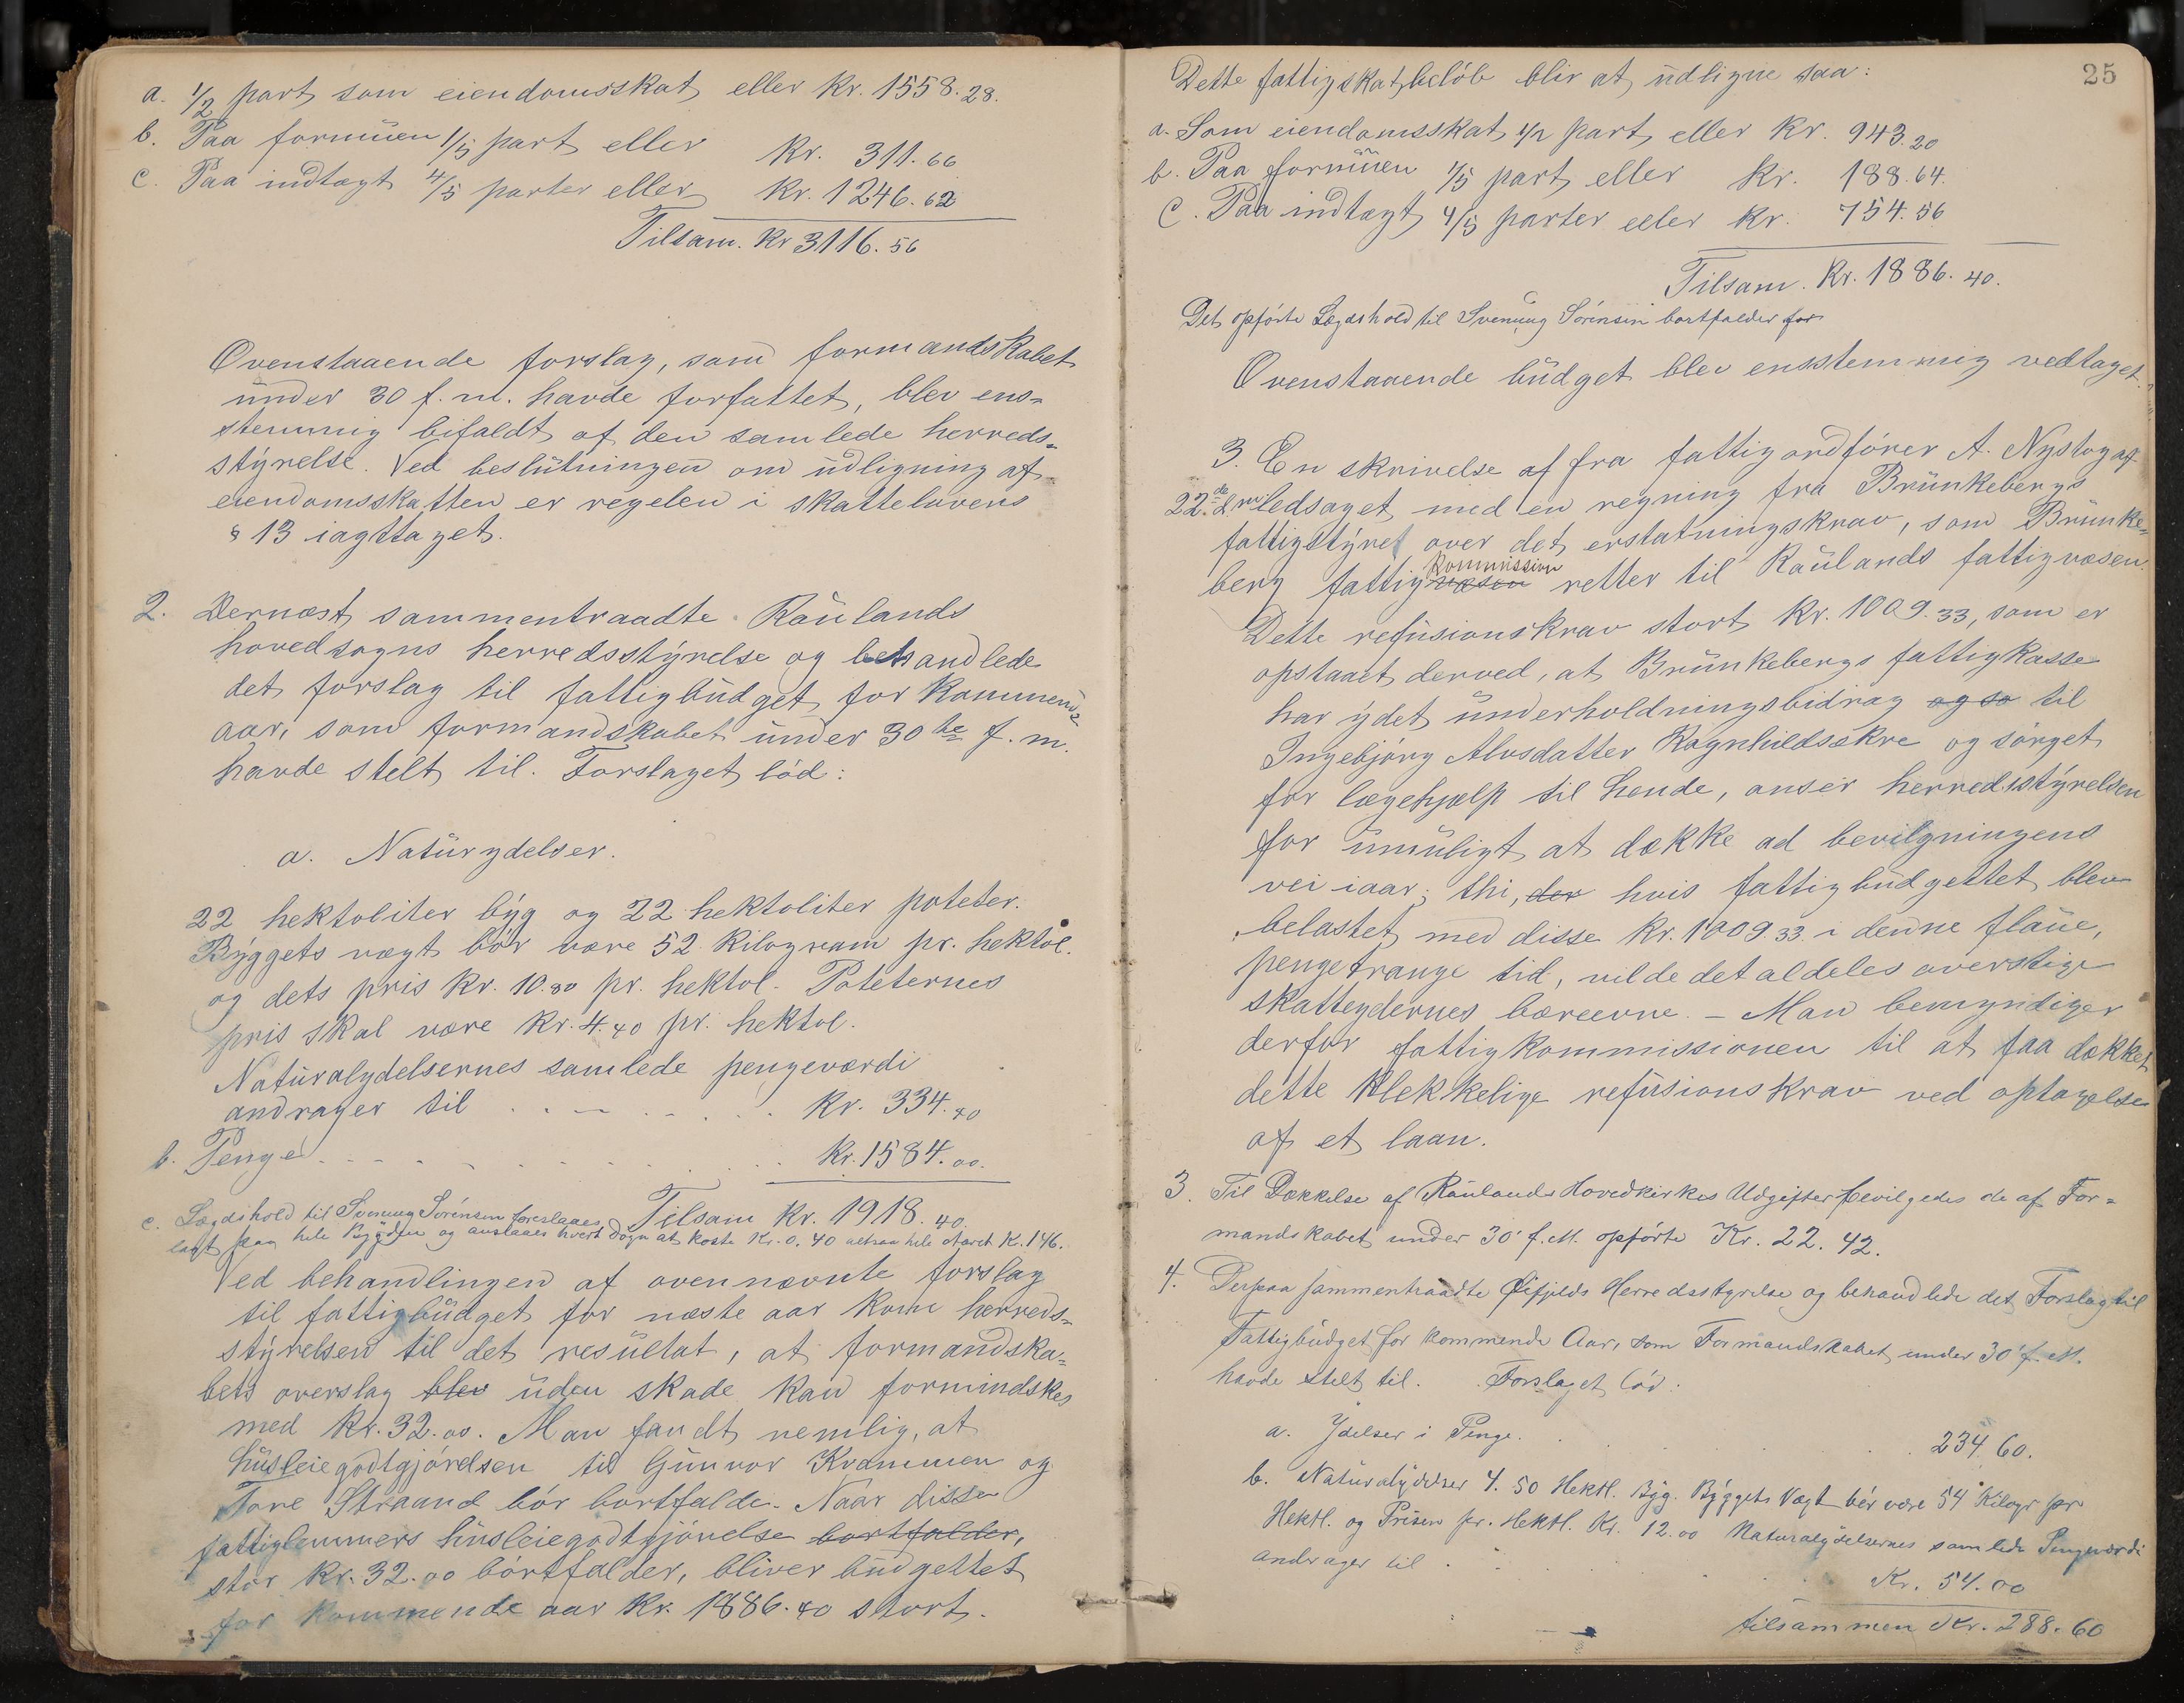 a. 1/2 part som eiendomsskat eller Kr. 1558.28.
b. Paa formuen 1/5 part eller Kr. 311.66
c. Paa indtægt 4/5 parter eller Kr. 1246.62
Tilsam. Kr 3116.56
Ovenstaaende forslag, som formandskabet
under 30 f. m. havde forfattet, blev ens=
stemmig bifaldt af den samlede herreds=
styrelse. Ved beslutningen om udligning af
eiendomsskatten er regelen i skattelovens
§ 13 iagttaget.
2. Dernæst sammentraadte Raulands
hovedsogns herredsstyrelse og behandlede
det forslag til fattigbudget for kommende
aar, som formandskabet under 30te f. m.
havde stelt til. Forslaget lød:
a. Naturydelser.
22 hektoliter byg og 22 hektoliter poteter.
Byggets vægt bør være 52 Kilogram pr. hektol.
og dets pris Kr. 10.80 pr. hektol. Poteternes
pris skal være Kr. 4.40 pr. hektol.
Naturalydelsernes samlede pengeværdi
andrager til Kr. 334.40
b. Penge Kr. 1584.00.
Tilsam Kr. 1918.40.
c. Lægdshold til Svenung Sörensen foreslaaes
lagt paa hele Bygden og anslaaes hvert Døgn at koste Kr. 0.40 altsaa hele Aaret K. 146.
Ved behandlingen af ovennævnte forslag
til fattigbudget for næste aar kom herreds=
styrelsen til det resultat, at formandska=
bets overslag blev uden skade kan formindskes
med Kr. 32.00. Man fandt nemlig, at
husleiegodtgjørelsen til Gunvor Kvammen og
Tone Straand bør bortfalde. Naar disse
fattiglemmers husleiegodtgjørelse bortfalder,
stor Kr. 32.00 bortfalder, bliver budgettet
for kommende aar Kr. 1886.40 stort.
25
Dette fattigskatbeløb blir at udligne saa:
a. Som eiendomsskat 1/2 part eller Kr. 943.20
b. Paa formuen 1/5 part eller Kr. 188.64.
c. Paa indtægt 4/5 parter eller Kr. 754.56
Tilsam. Kr. 1886.40.
Det opførte Lægdshold til Svenung Sörensen bortfalder for
Ovenstaaende budget blev ensstemmig vedtaget.
3. En skrivelse af fra fattigordfører A. Nystog af
22.de ledsaget med en regning fra Brunkebergs
fattigstyret over det erstatningskrav, som Brunke=
kommission
berg fattigvæsen retter til Raulands fattigvæsen.
Dette refusionskrav stort Kr. 1009.33, som er
opstaaet derved, at Brunkebergs fattigkasse
har ydet underholdningsbidrag og so til
Ingebjørg Alvsdatter Ragnhildsækre og sørget
for lægehjælp til hende, anser herredsstyrelsen
for umuligt at dække ad bevilgningens
vei iaar; thi, der hvis fattigbudgettet blev
belastet med disse Kr. 1009.33. i denne flaue,
pengetrange tid, vilde det aldeles overstige
skatteydernes bæreevne. – Man bemyndiger
derfor fattigkommissionen til at faa dækket
dette klekkelige refusionskrav ved optagelse
af et laan.
3. Til Dækkelse af Raulands Hovedkirkes Udgifter bevilgedes de af For=
mandskabet under 30' f. M. opførte Kr. 22.42.
4. Derpaa sammentraadte Øifjelds Herredsstyrelse og behandlede det Forslag til
Fattigbudget for kommende Aar, som Formandskabet under 30' f. M.
havde stelt til. Forslaget lød:
a. Ydelser i Penge. 234.60.
b. Naturalydelser 4.50 Hektl. Byg. Byggets Vægt bør være 54 Kilogr pr
Hektl. og Prisen pr. Hektl. Kr. 12.00 Naturalydelsernes samlede Pengeværdi
andrager til
Kr. 54.00
tilsammen Kr. 288.60